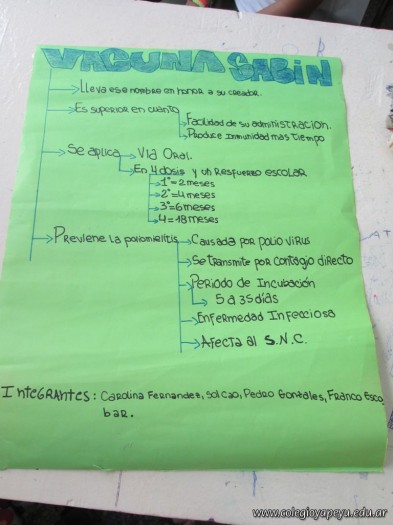 VACUNA SABIN
Lleva ese nombre en honor a su creador.
Es superior en cuánto
Facilidad de su administración.
Produce inmunidad mas tiempo
Se aplica
Via Oral.
En 4 dosis y un resfuerzo escolar
1°=2 meses
2°=4 meses
3°=6 meses
4=18 meses
Previene la poliomielitis
Causada por polio virus
Se transmite por contagio directo
Periodo de Incubación
5 a 35 días
Enfermedad Infecciosa
Afecta al S.N.C.
Integrantes: Carolina Fernandez, Sol Cao, Pedro Gonzales, Franco Esco
bar.
www.colegioyapeyu.edu.ar